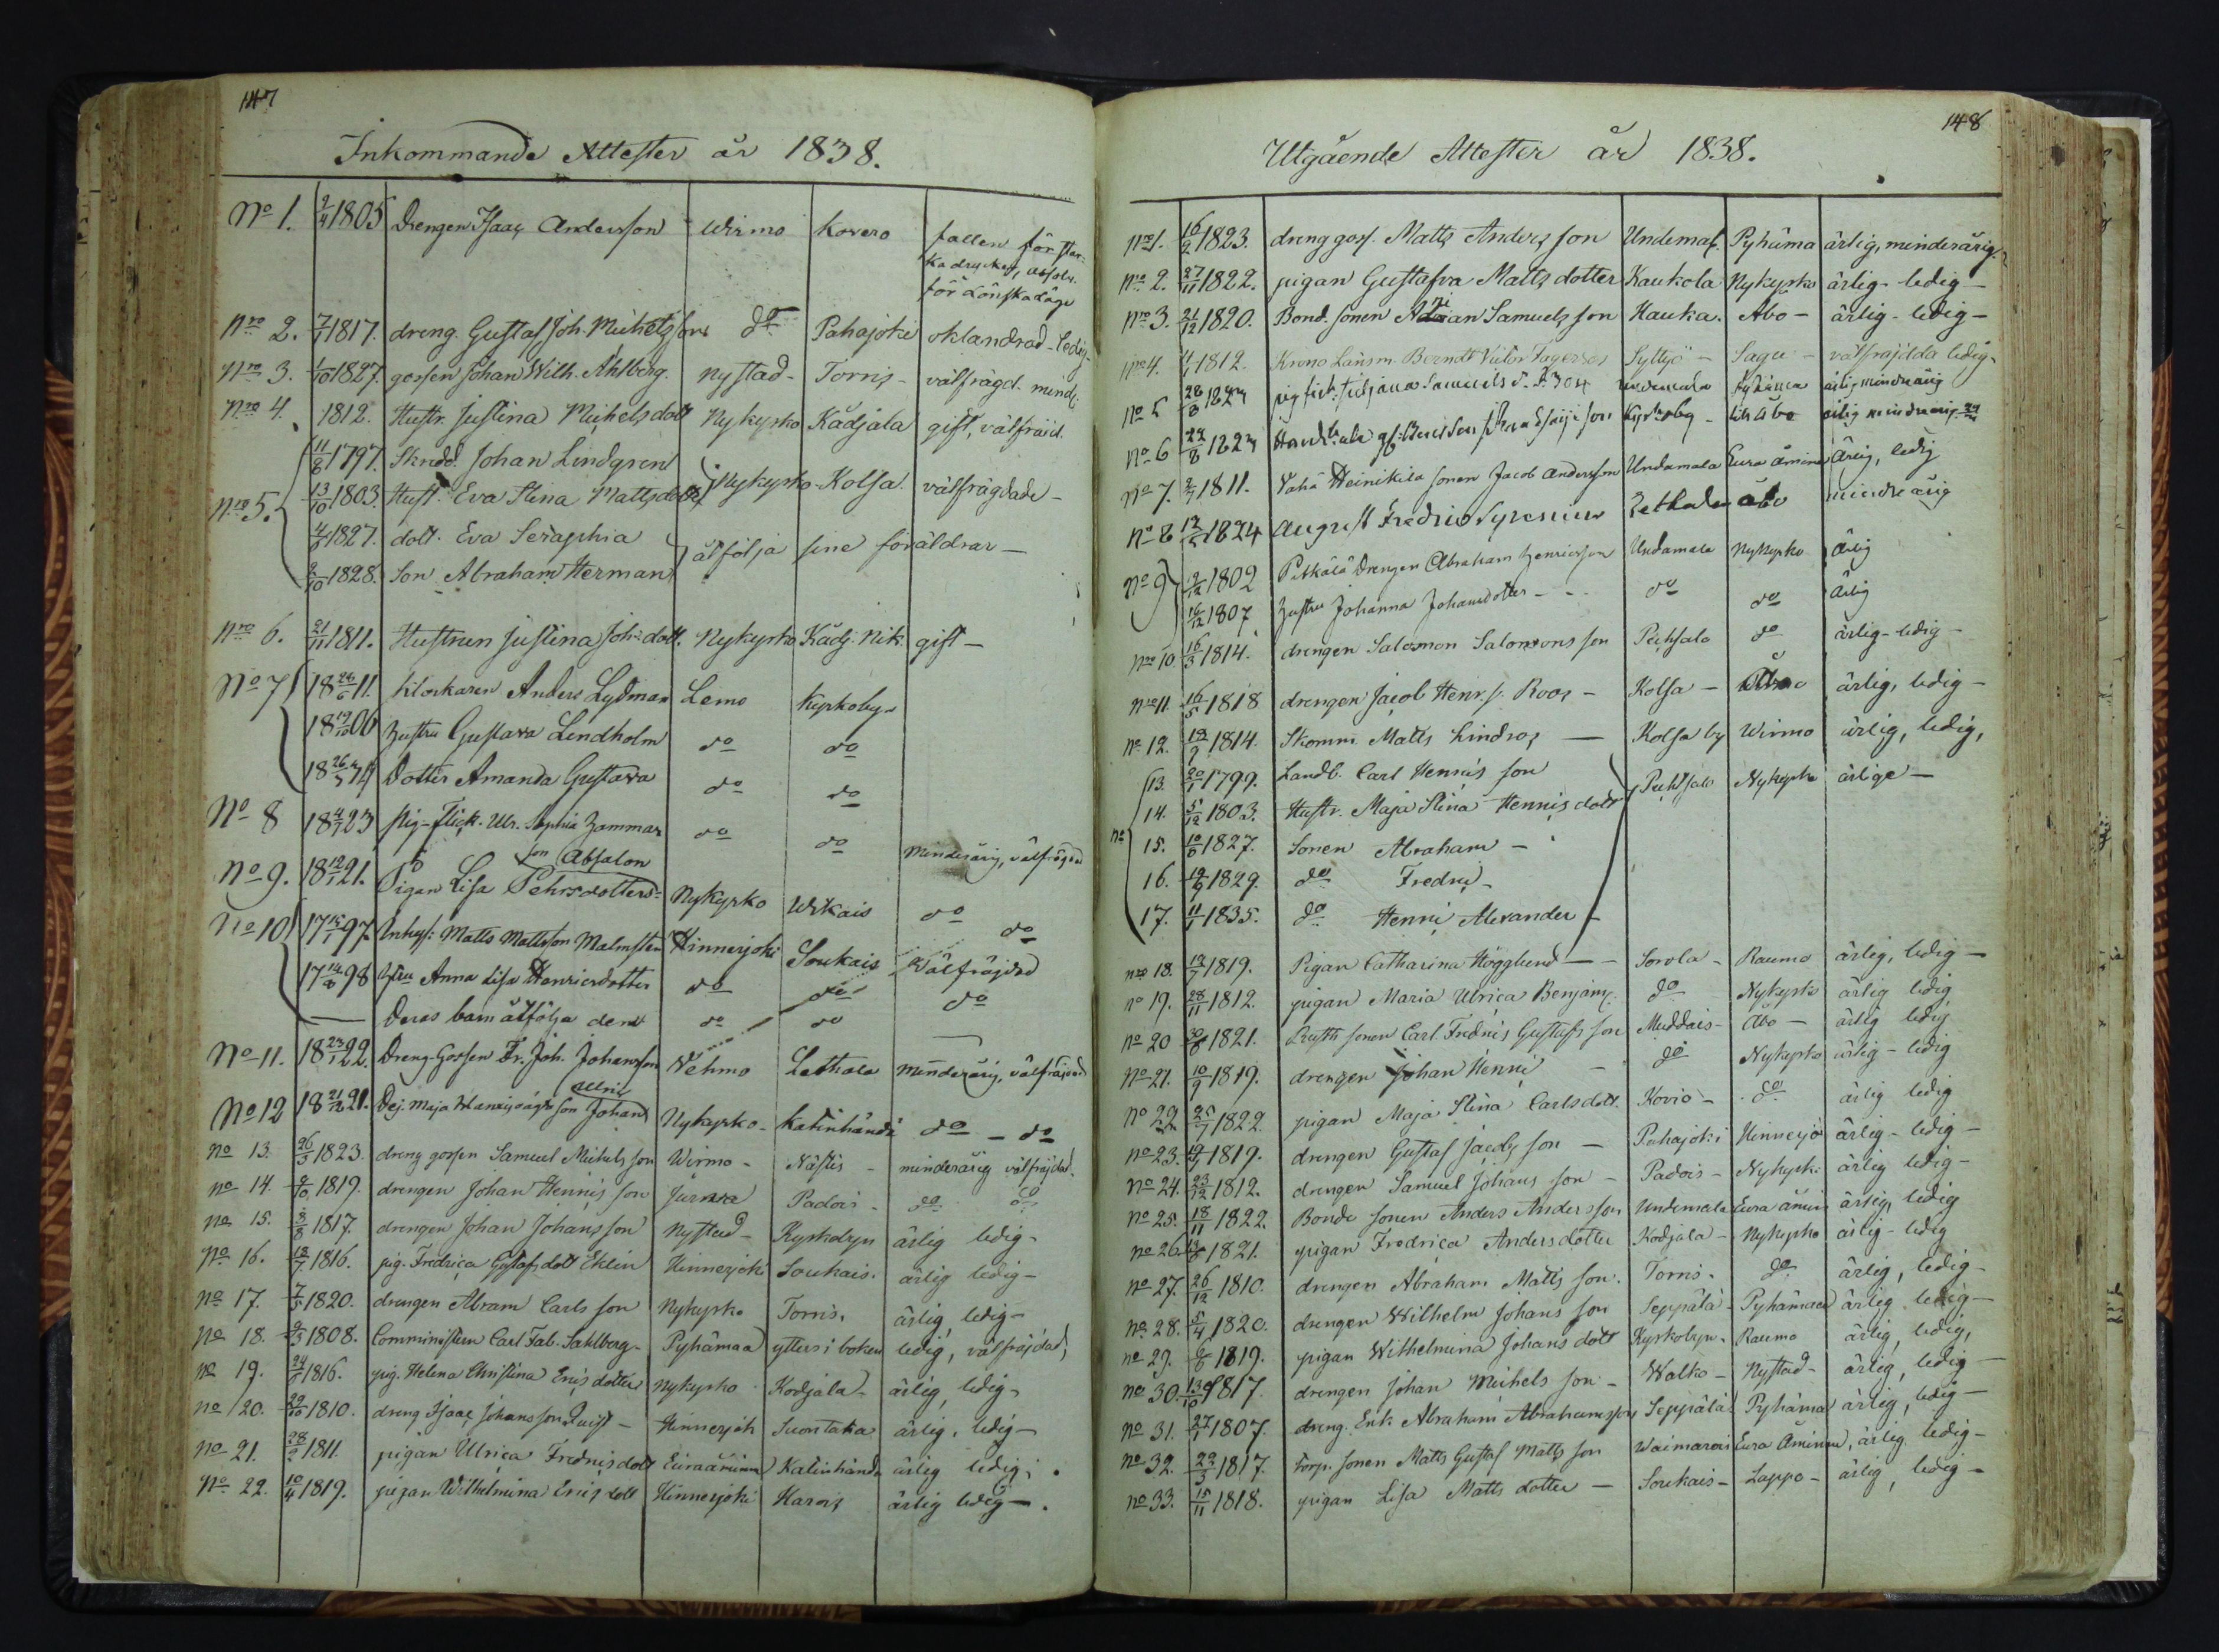 147
Inkommande Attester år 1838.
No 1. 2/4 1805 Drengen Isaac Andersson Wirmo Kovero fallen för star-
ka drycker, absolv.
för Lönskaläge
Nro 2. 7/7 1817. dreng. Gustaf Joh. Michelsson do Pahajoki oklandrad - ledig-
Nro 3. 1/10 1827. gossen Johan Wilh. Ahlberg. Nystad- Torris- välfrägd. mind:
Nro 4. 1812. Hustr. Justina Michelsdott Nykyrko Kädjala gift, välfräid.
11/8 1797. Skredd. Johan Lindgren
Nro 5. 13/10 1803. Hust. Eva Stina Mattsdott Nykyrko- Kolsa välfrägdade-
4/6 1827. dott. Eva Seraphia
åtfölja sine föräldrar-
2/10 1828. Son Abraham Herman
Nro 6. 21/11 1811. Hustrun Justina Joh:dott. Nykyrko Kädj. Nik. gift-
No 7 18 24/6 11. Klockaren Anders Lydman Lemo Kyrkoby
18 19/10 06 Hustru Gustava Lindholm do do
Dotter Amanda Gustava do do
No 8 18 4/7 23 Pig-Flick. Ulr. Sophia Hammar do do Minderårig, välfrägdad
son Absalon
No 9. 18 12/1 21. Pigan Lisa Pehrsdotters- Nykyrko Wikais do do
No 10 17 15/1 97. Inhys: Matts Mattsson Malmsten Hinnerjoki Soukais Wälfräjdad
17 14/8 98 Hru Anna Lisa Henricsdotter do do do
Deras barn åtfölja dem do do
No 11. 18 23/1 22. Dreng-Gossen Fr. Joh. Johansson Wehmo Lethala minderårig, välfräjdad
Ulric
No 12 18 21/12 21. Dej. Maja son Johan Nykyrko- Katinhändä do - do
No 13. 26/5 1823. dreng gossen Samuel Michelsson Wirmo- Nästis- minderårig välfräjdad.
No 14. 2/10 1819. drengen Johan Henrics son Padois- do do
No 15. 8/8 1817. drengen Johan Johansson Nystad- Kyrkobyn ärlig ledig-
No 16. 18/7 1816. pig. Fredrica Gustafsdott Eklin Hinnerjoki Soukais. ärlig ledig-
No 17. 7/5 1820. drengen Abram Carls son Nykyrko Torris. ärlig ledig-
No 18. 2/5 1808. Comministern Carl Fab. Sahlberg- Pyhämaa ytters i boken ledig, välfräjdad,
No 19. 24/6 1816. pig. Helena Christina Erics dotter Nykyrko Kodjala- ärlig, ledig-
No 20. 29/10 1810. dreng Isaac Johansson Quist- Hinnerjoki Suontaka ärlig, ledig-
No 21. 28/2 1811. pigan Ulrica Fredricsdott Euraåminne Katinhändä ärlig ledig;
No 22. 10/4 1819. pigan Wilhelmina Erics dott Hinnerjoki Harois ärlig ledig-.
148
Utgående Attester år 1838.
Nro 1. 16/2 1823. dreng goss. Matts Anders son Undemal. Pyhäma ärlig, minderårig.
No 2. 27/11 1822. pigan Gustafva Matts dotter Kaukola Nykyrko ärlig- ledig-
Nro 3. 21/12 1820. Bond. sonen Adrian Samuels son Hauka. Åbo- ärlig- ledig-
Nro 4. 1812. Krono Länsm. Berndt Victor Fagerros Syttjö- Sagu- välfräjdad ledig-
No 5 28/8 1824 Samuels d. Undemala Pyhämaa ärlig mindreårig
No 6 24/8 1824 Kyrkoby- Åbo ärlig mindreårig
No 7. 2/7 1811. Vähä Heinikila sonen Jacob Andersson Undamala Eura åminne Ärlig, ledig
No 8 12/5 1824 August Fredric Syrenius Lethala Åbo mindreårig
No 9 9/12 1802 Pitkälä Drengen Abraham Henricsson Undamala Nykyrko Ärlig
16/12 1807 Hustru Johanna Johansdotter - - do do Ärlig
Nro 10 16/3 1814. drengen Salomon Salomons son Peihsalo do ärlig- ledig-
Nro 11. 16/5 1818 drengen Jacob Henr. s. Roos- Kolsa- Åbo ärlig, ledig-
No 12. 19/9 1814. Skomm. Matts Lindros - Kolsa by Wirmo ärlig, ledig,
13. 20/1 1799. Landb. Carl Henrics son
14. 5/12 1803. Hustr. Maja Stina Henrics dott Peihsalo Nykyrko ärlige-
No 15. 10/8 1827. Sonen Abraham-
16. 19/6 1829. do Fredric-
17. 11/1 1835. do Henric Alexander-
Nro 18. 13/7 1819. Pigan Catharina Högglund- Sorola- Raumo ärlig, ledig-
No 19. 28/11 1812. pigan Maria Ulrica Benjam. do Nykyrko ärlig ledig
No 20 30/8 1821. Rusth. sonen Carl Fredric Gustafs son Muddais- Åbo- ärlig ledig
No 21. 10/9 1819. drengen Johan Henric - do Nykyrko ärlig- ledig
No 22 25/7 1822. pigan Maja Stina Carlsdott. Kovio- do ärlig ledig
No 23. 1819. drengen Gustaf Jacobs son - Pahajoki Hinnerjo ärlig- ledig-
No 24. 23/12 1812. drengen Samuel Johans son- Padois- Nykyrk: ärlig ledig-
No 25. 18/11 1822. Bonde sonen Anders Anders son Undemala Eura åmin ärlig, ledig
No 26. 1821. pigan Fredrica Andersdotter Kodjala- Nykyrko ärlig- ledig
No 27. 26/12 1810. drengen Abraham Matts son. Torris. do ärlig, ledig-
No 28. 5/4 1820. drengen Wilhelm Johans son Seppälä- Pyhämaa ärlig ledig-
No 29. 2/6 1819. pigan Wilhelmina Johans dott Kyrkobyn- Raumo ärlig, ledig,
No 30. 13/10 1817. drengen Johan Michels son- Walko- Nystad- ärlig, ledig-
No 31. 27/1 1807. dreng. Enk. Abraham Abrahamsson Seppälä Pyhäma ärlig, ledig-
No 32. 22/3 1817. torp. sonen Matts Gustaf Matts son Waimarois Eura Åminne, ärlig ledig-
No 33. 15/11 1818. pigan Lisa Matts dotter - Soukais- Lappo- ärlig, ledig-